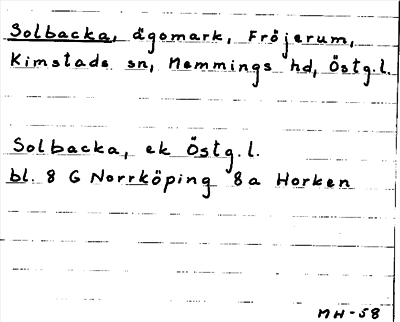 Solbacka, ägomark, Fröjerum,
Kimstads sn, Memmings hd, Östg.l.
Solbacka, ek Östg.l.
bl. 8 G Norrköping 8a Horken
MH-58